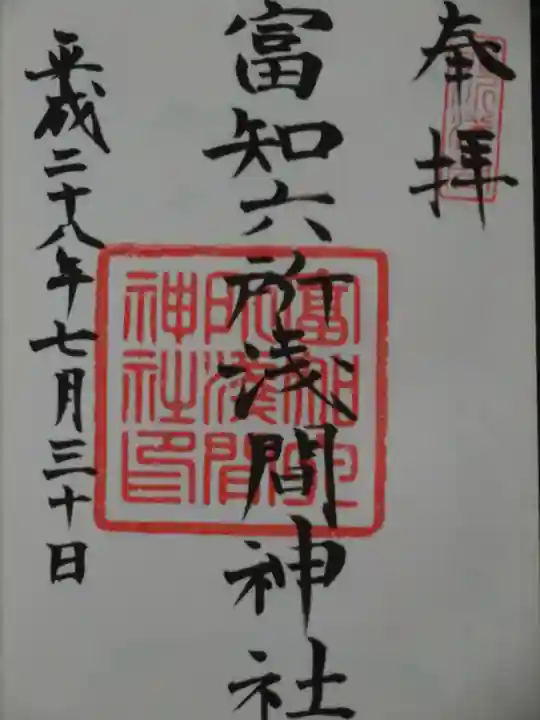 奉拝
富知六所浅間神社
平成二十八年七月三十日
富知六所浅間神社印